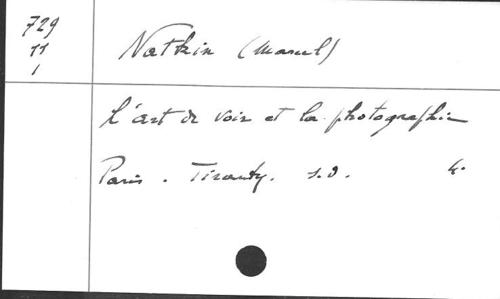 729
11
1
Natkin (Marcel)
L'art de voir et la photographie
Paris. Tiranty. s.d. 4°